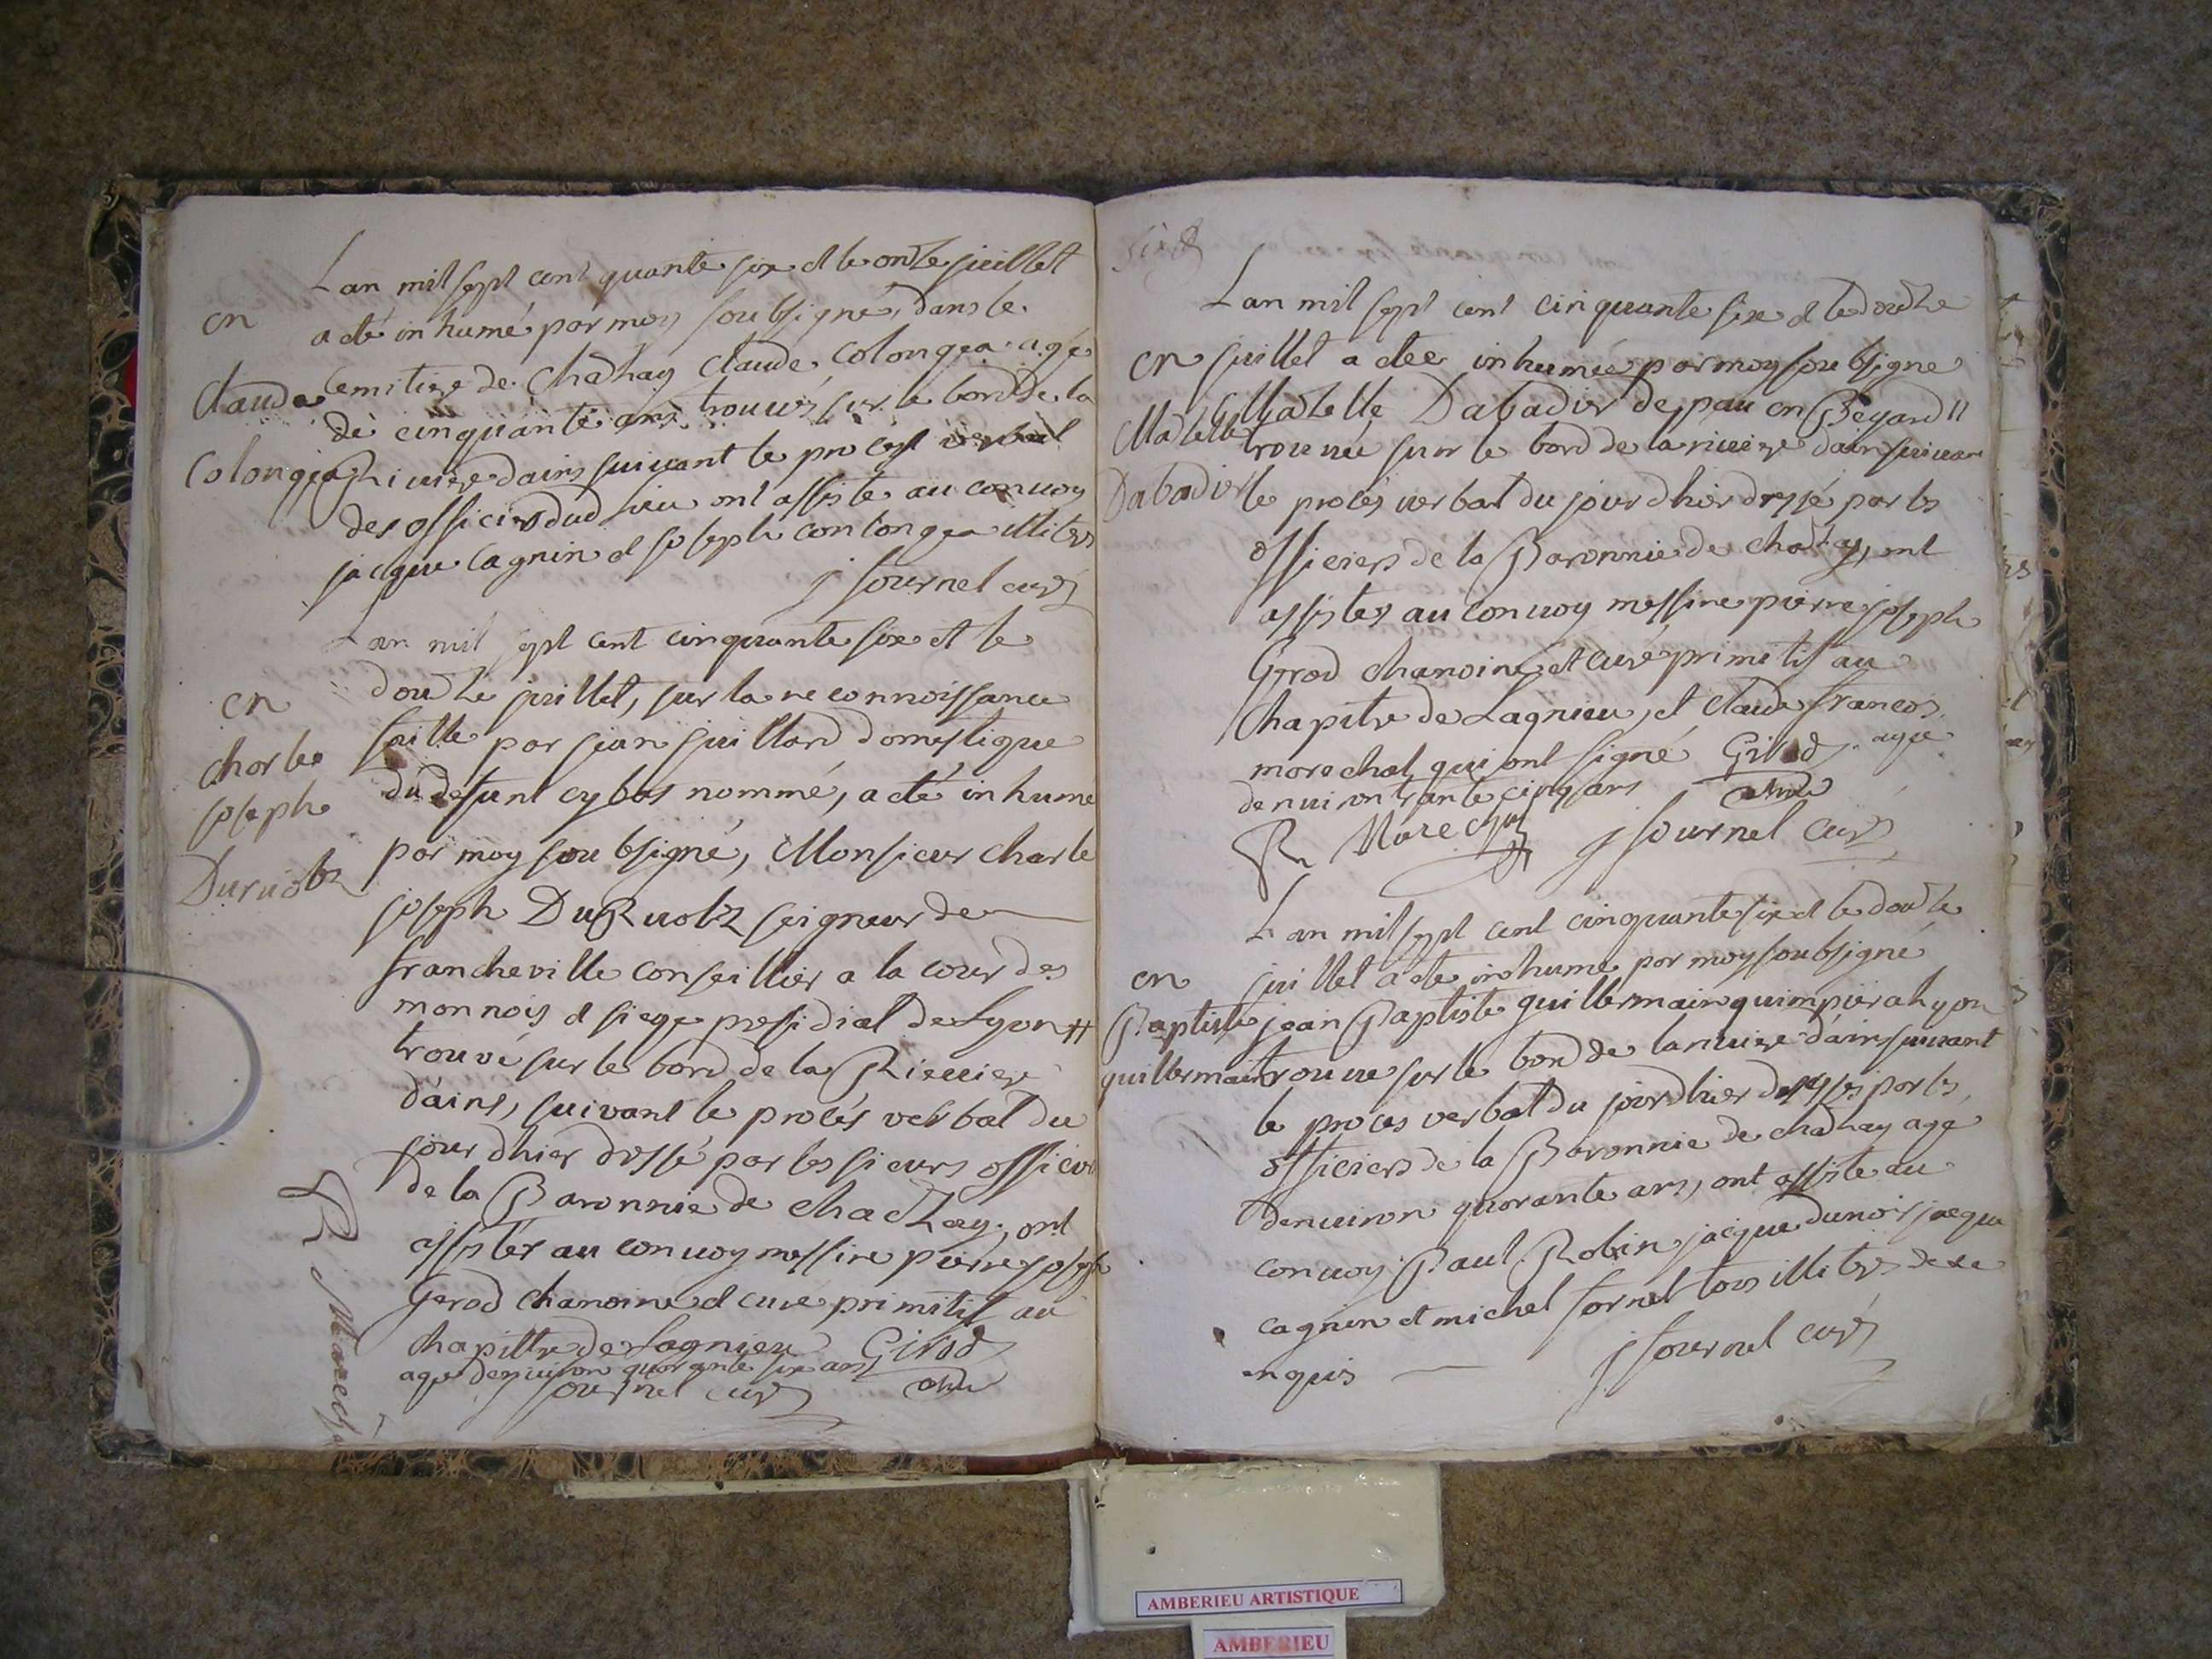 Lan mil sept cent quante six et le onze juillet
en
a été inhumé par moy soubsigné, dans le
Claude
cemitiere de Chazhay Claude Colongea agé
de cinquante ans trouvés sur le bord de la
Colongea
Riviere dains suivant le procest verbal
des officiers dud lieu ont assisté au convoy
jacque Cagnin et joseph conlongea illiters
j fournel curé
Lan mil sept cent cinquante six et le
en
douzle juillet, sur la reconnoissance
charles
faitte par jean juillard domestique
joseph
du defunt cybas nommé, a été inhumé
Duruolz
par moy soubsigné, Monsieur Charle
joseph DuRuolz seigneur de
francheville conseillier a la cour des
monnois et siege presidial de Lyon
trouvé sur le bord de la Rieviere
d'ains, suivant le procés verbal du
jour dhier dressé par les sieurs officiers
de la Baronnie de chazhay, ont
assistér au convoy messire pierre joseph
Gerod chanoine et curé primitif au
chapittre de Lagnieu Girod
agé denuiron quorante six ans
fournel curé
R Marechal
Lan mil sept cent cinquante six et le douzle
en
juillet a étée inhumée par moy soubsigne
Mazelle
Mazelle Dabadier de pau en Begard
trouvé sur le bord de la riviere dain suivan
Dabadier
le procés verbal du jour dhier dressé par les
officiers de la Baronnie de chazhay, ont
assistes au convoy messire pierre joseph
Gerod chanoine et curé primitif au
Chapitre de Lagnieu, et Claude francos
marechal qui ont signé Girod agée
denuiron trante cinq ans
R Marechal j fournel curé
Lan mil sept cent cinquante six et le douzle
en
juillet a été inhumé par moy soubsigné
Baptiste
jean Baptiste guillermain guimpier a Lyon
guillermain
trouve sur le bord de la riviere dains suivant
le procés verbal du jour dhier dressés par les
officiers de la Baronnie de chazhay agé
denuiron quorante ans, ont assisté au
convoy Paul Robin jacque dunoir jacque
cagnin et michel fornel tous illiters de ce
enquis
j fournel curé
AMBERIEU ARTISTIQUE
AMBERIEU